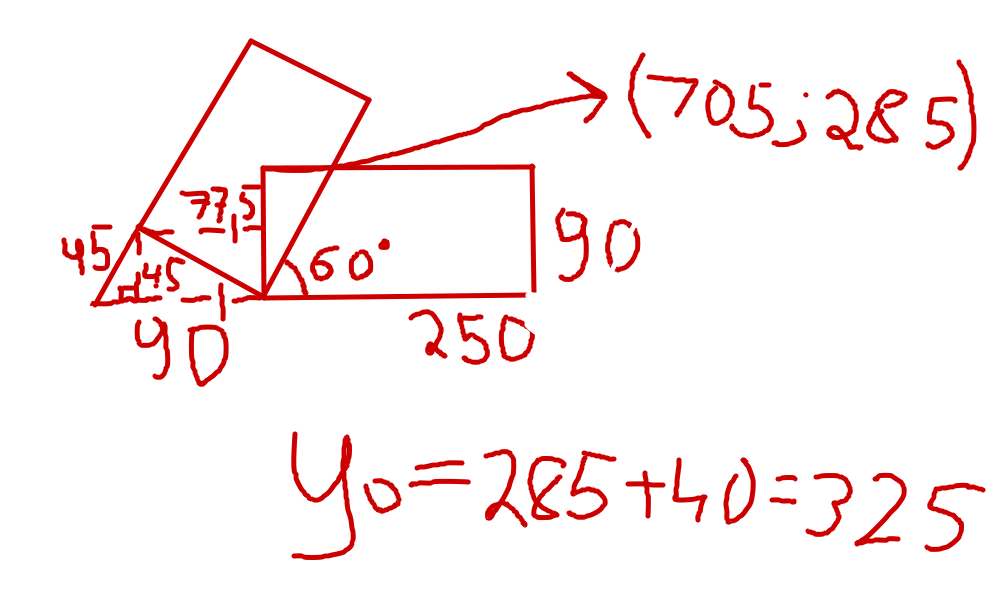 (705;285)
77,5
45
45
60°
90
90
250
y₀=285+40=325